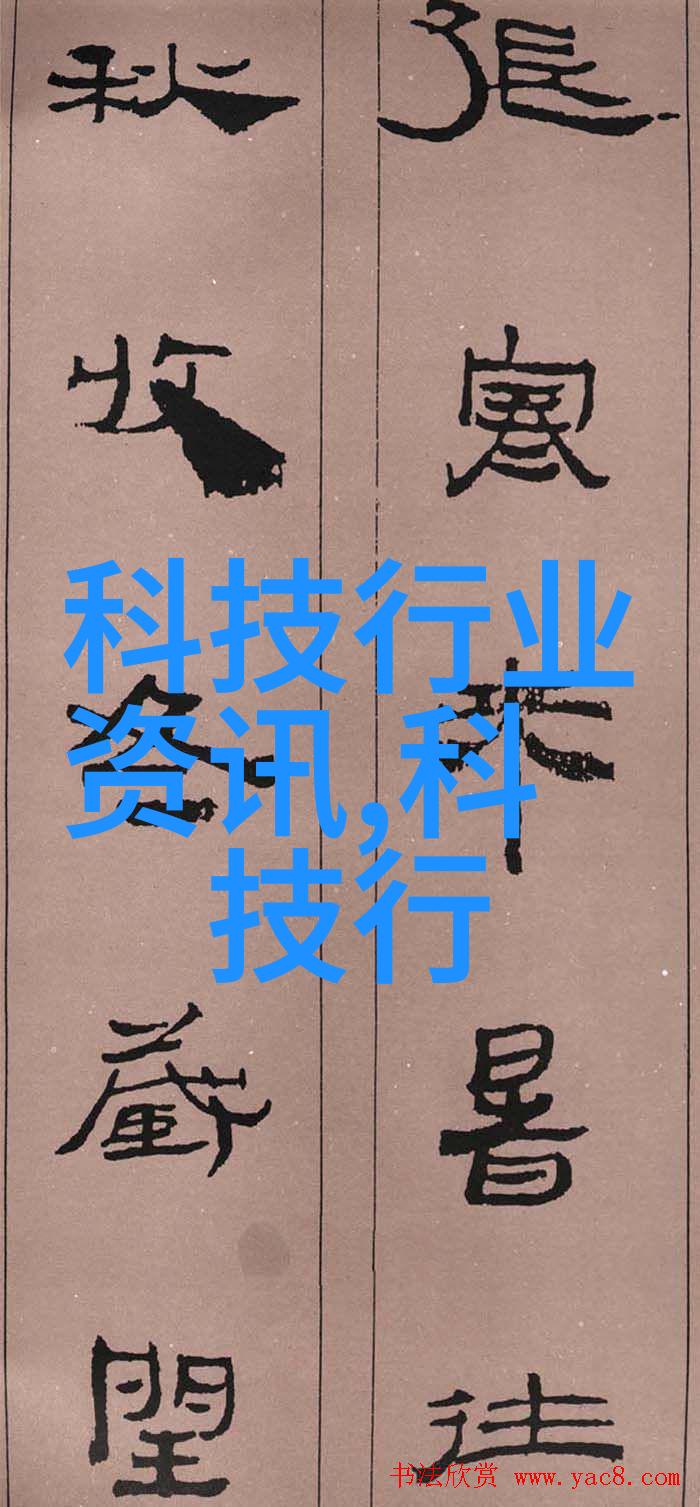 張寒来暑往
秋收冬藏閏
科技行业
资讯,科
技行
书法欣赏 www.yac8.com